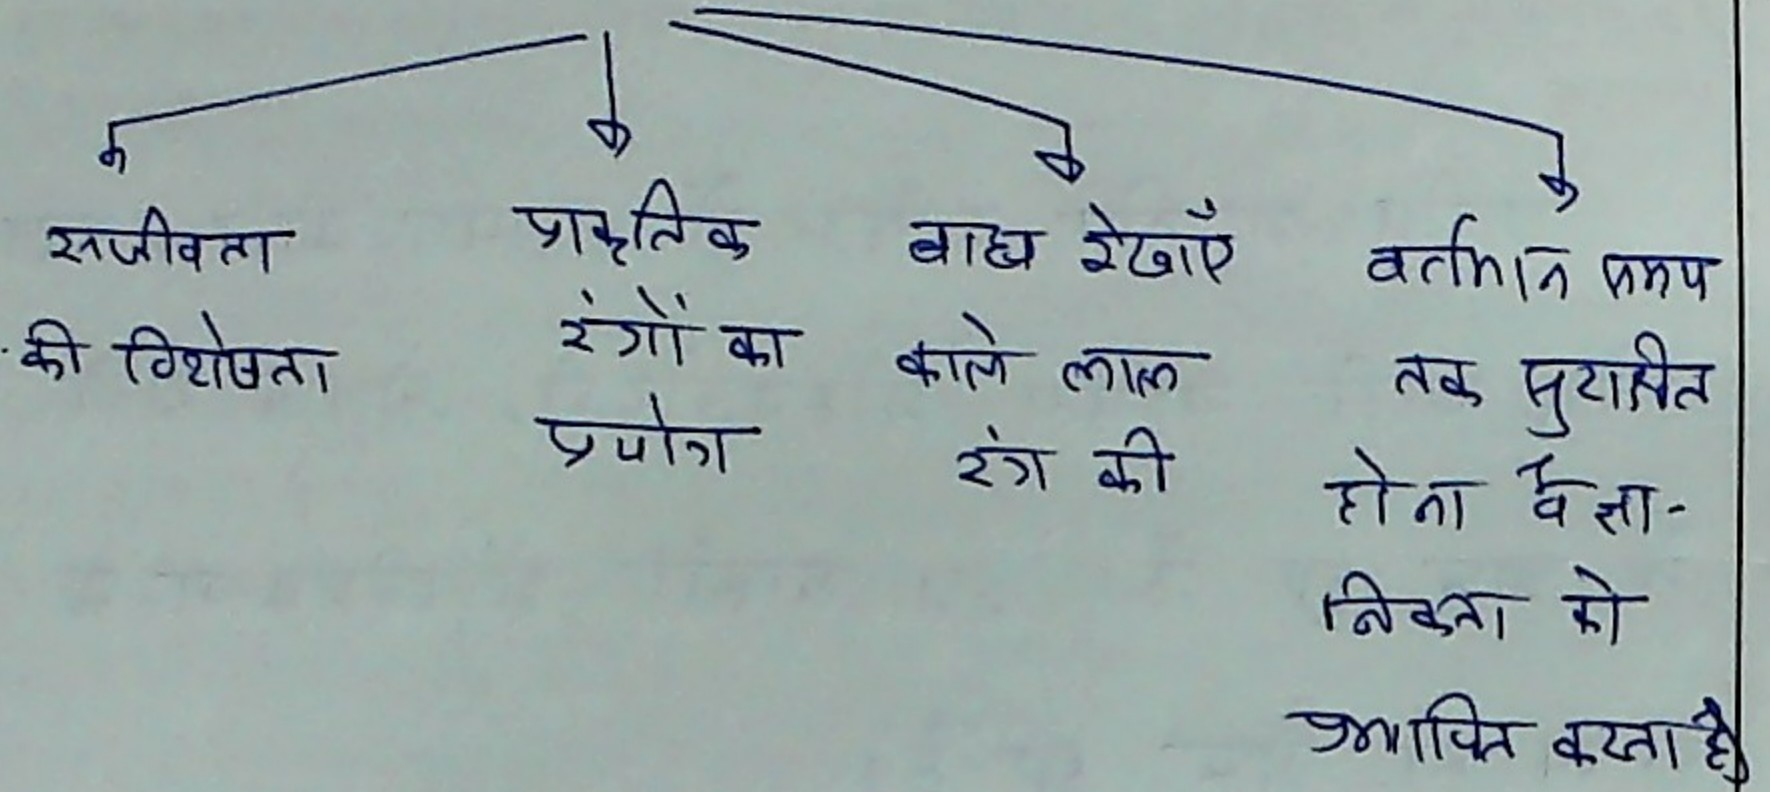 सजीवता
की विशेषता
प्राकृतिक
रंगों का
प्रयोग
बाह्य रेखाएँ
काले लाल
रंग की
वर्तमान समय
तक सुरक्षित
होना वैज्ञा-
निकता को
प्रमाणित करता है